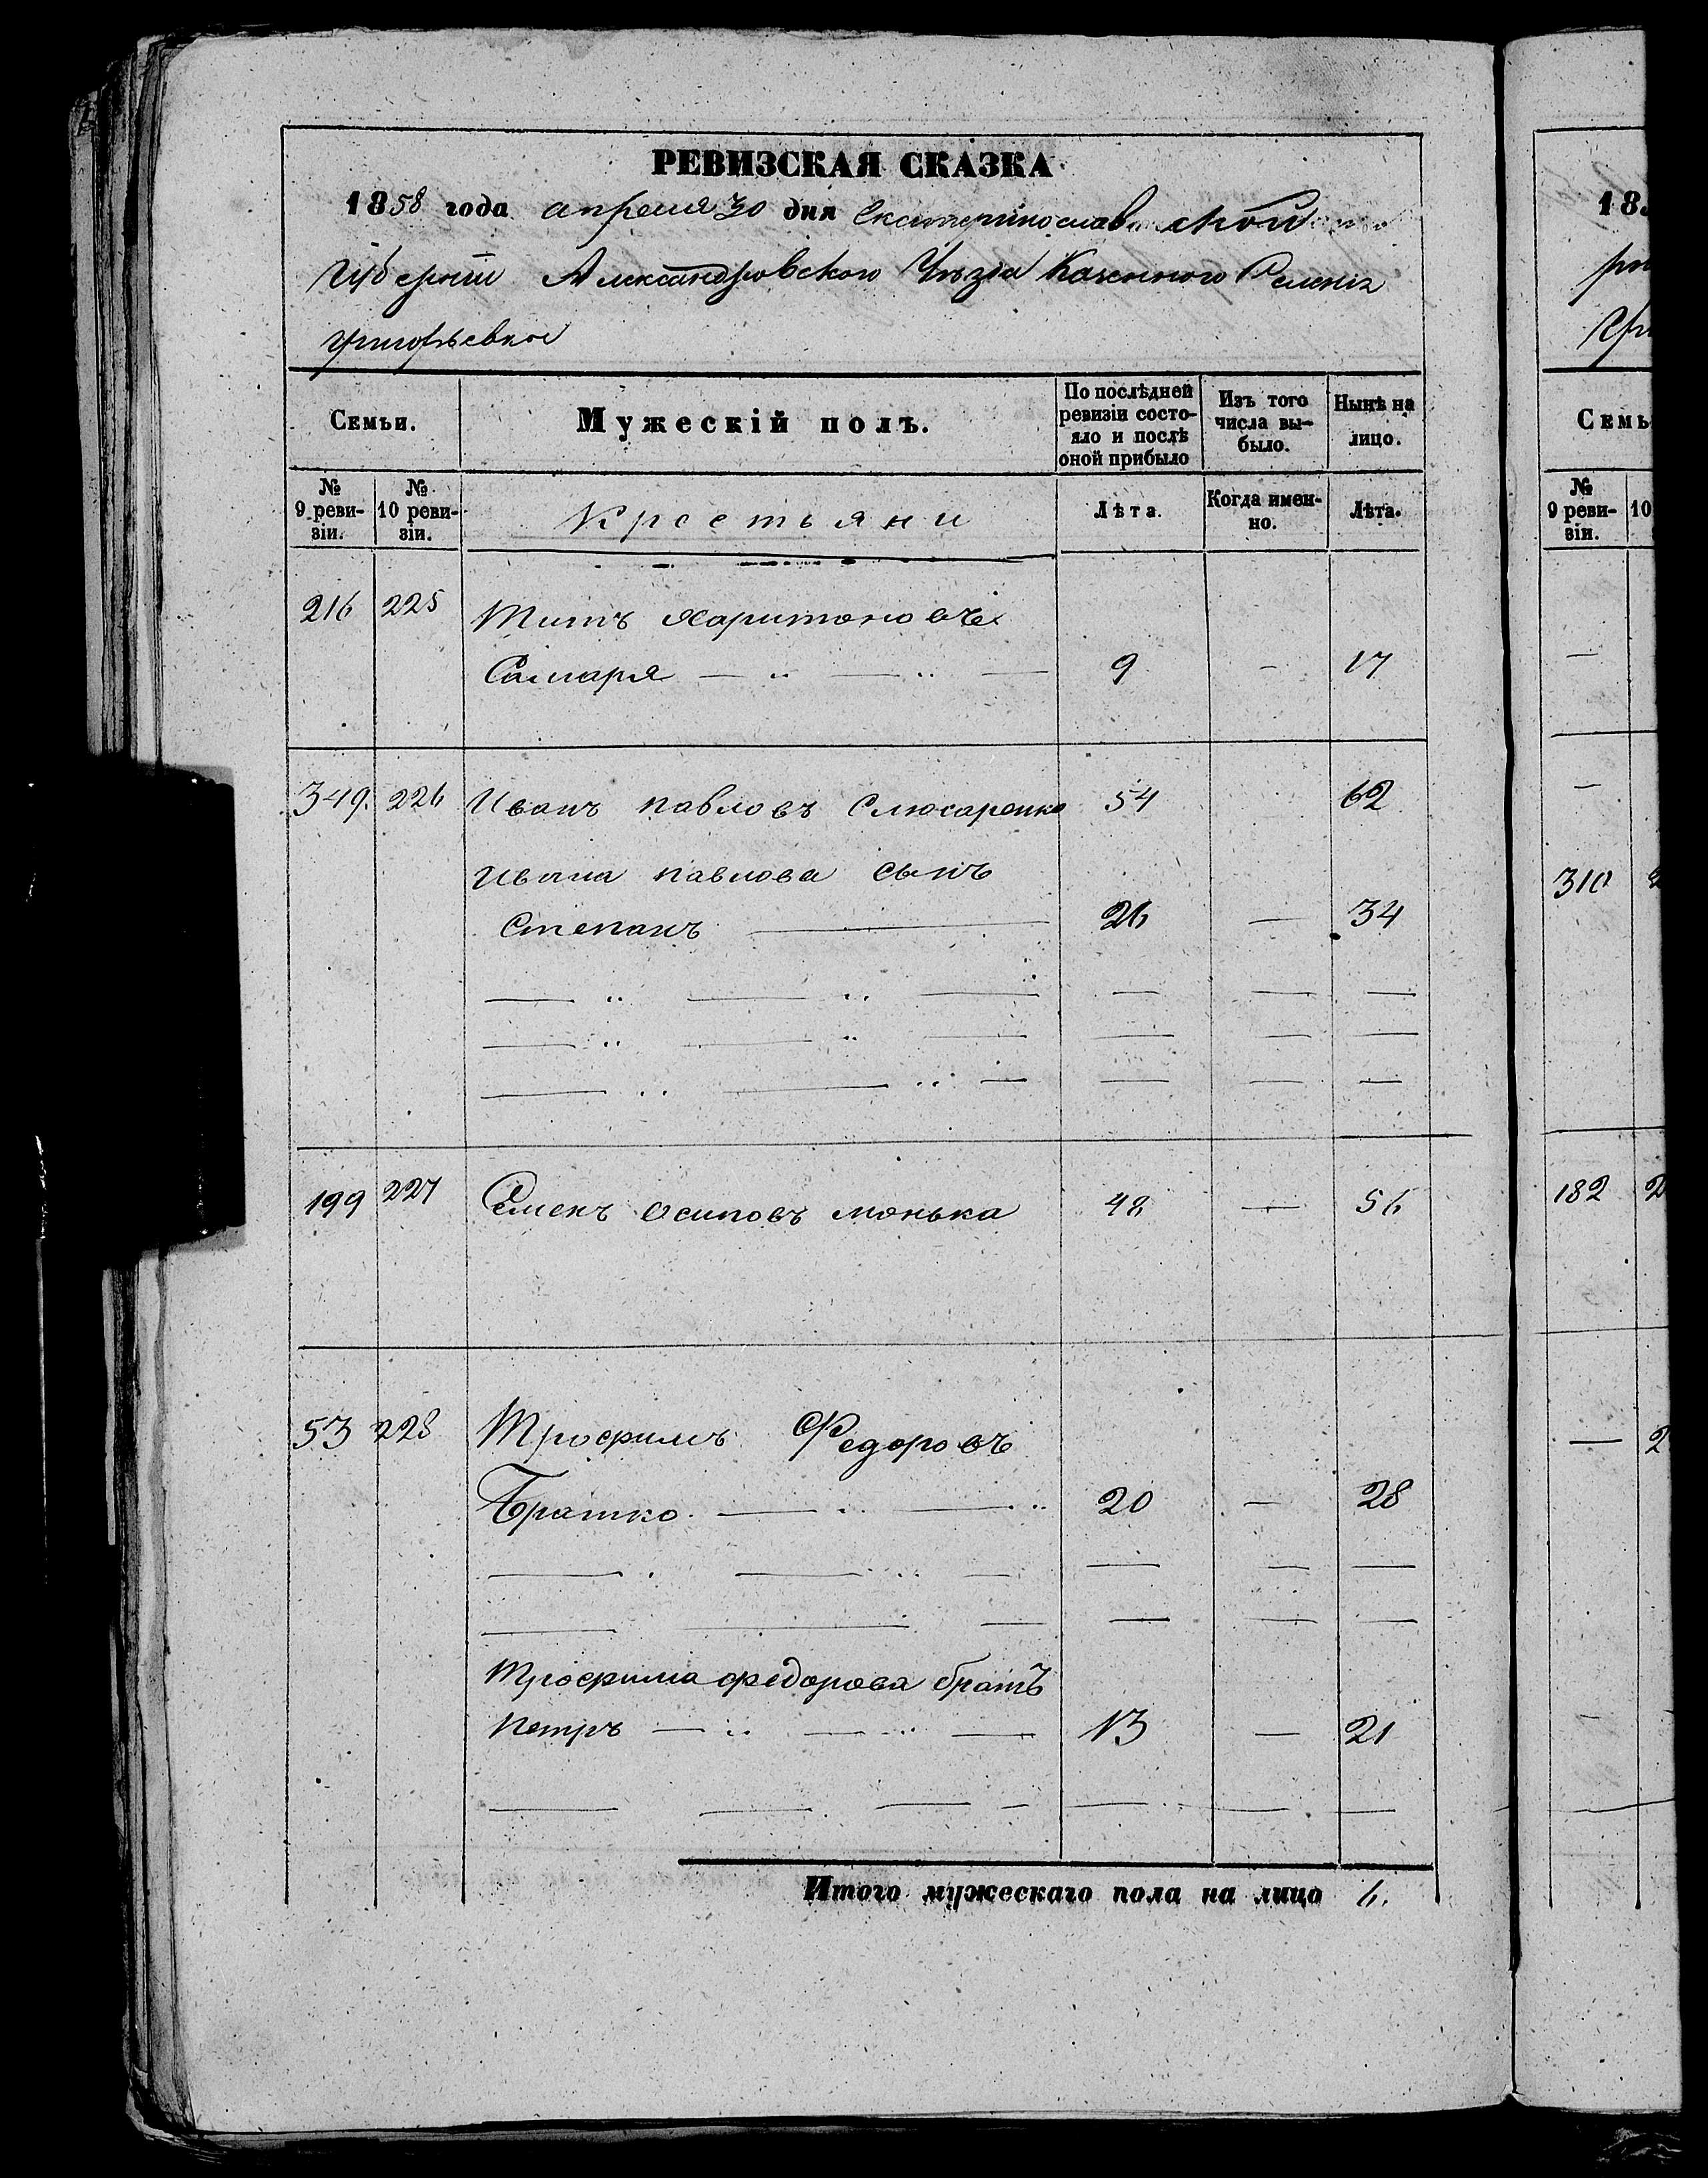 РЕВИЗСКАЯ СКАЗКА
1858 года апреля 30 дня Екатеринославской
Губернии Александровского Уѣзда Казенного Селения
Григорьевки
Семьи.
Мужескій полъ.
По послѣдней ревизіи состояло и послѣ оной прибыло
Изъ того числа выбыло.
Нынѣ на лицо.
№ 9 ревизіи.
№ 10 ревизіи.
Крестьяни
Лѣта.
Когда именно.
Лѣта.
216 225 Титъ Харитоновъ
Самаря — " — " — 9 — 17
349. 226 Иванъ павловъ Слюсаренко 54 62
Ивана павлова сынъ
Степанъ — 26 — 34
199 227 Семенъ Осиповъ монька 48 — 56
53 228 Трофимъ Федоровъ
Братко — " — " 20 — 28
Трофима федорова братъ
Петръ — " — " — 13 — 21
Итого мужескаго пола на лицо 6.
18
Семь
№ 9 ревизіи.
10
310
182 2
— 2